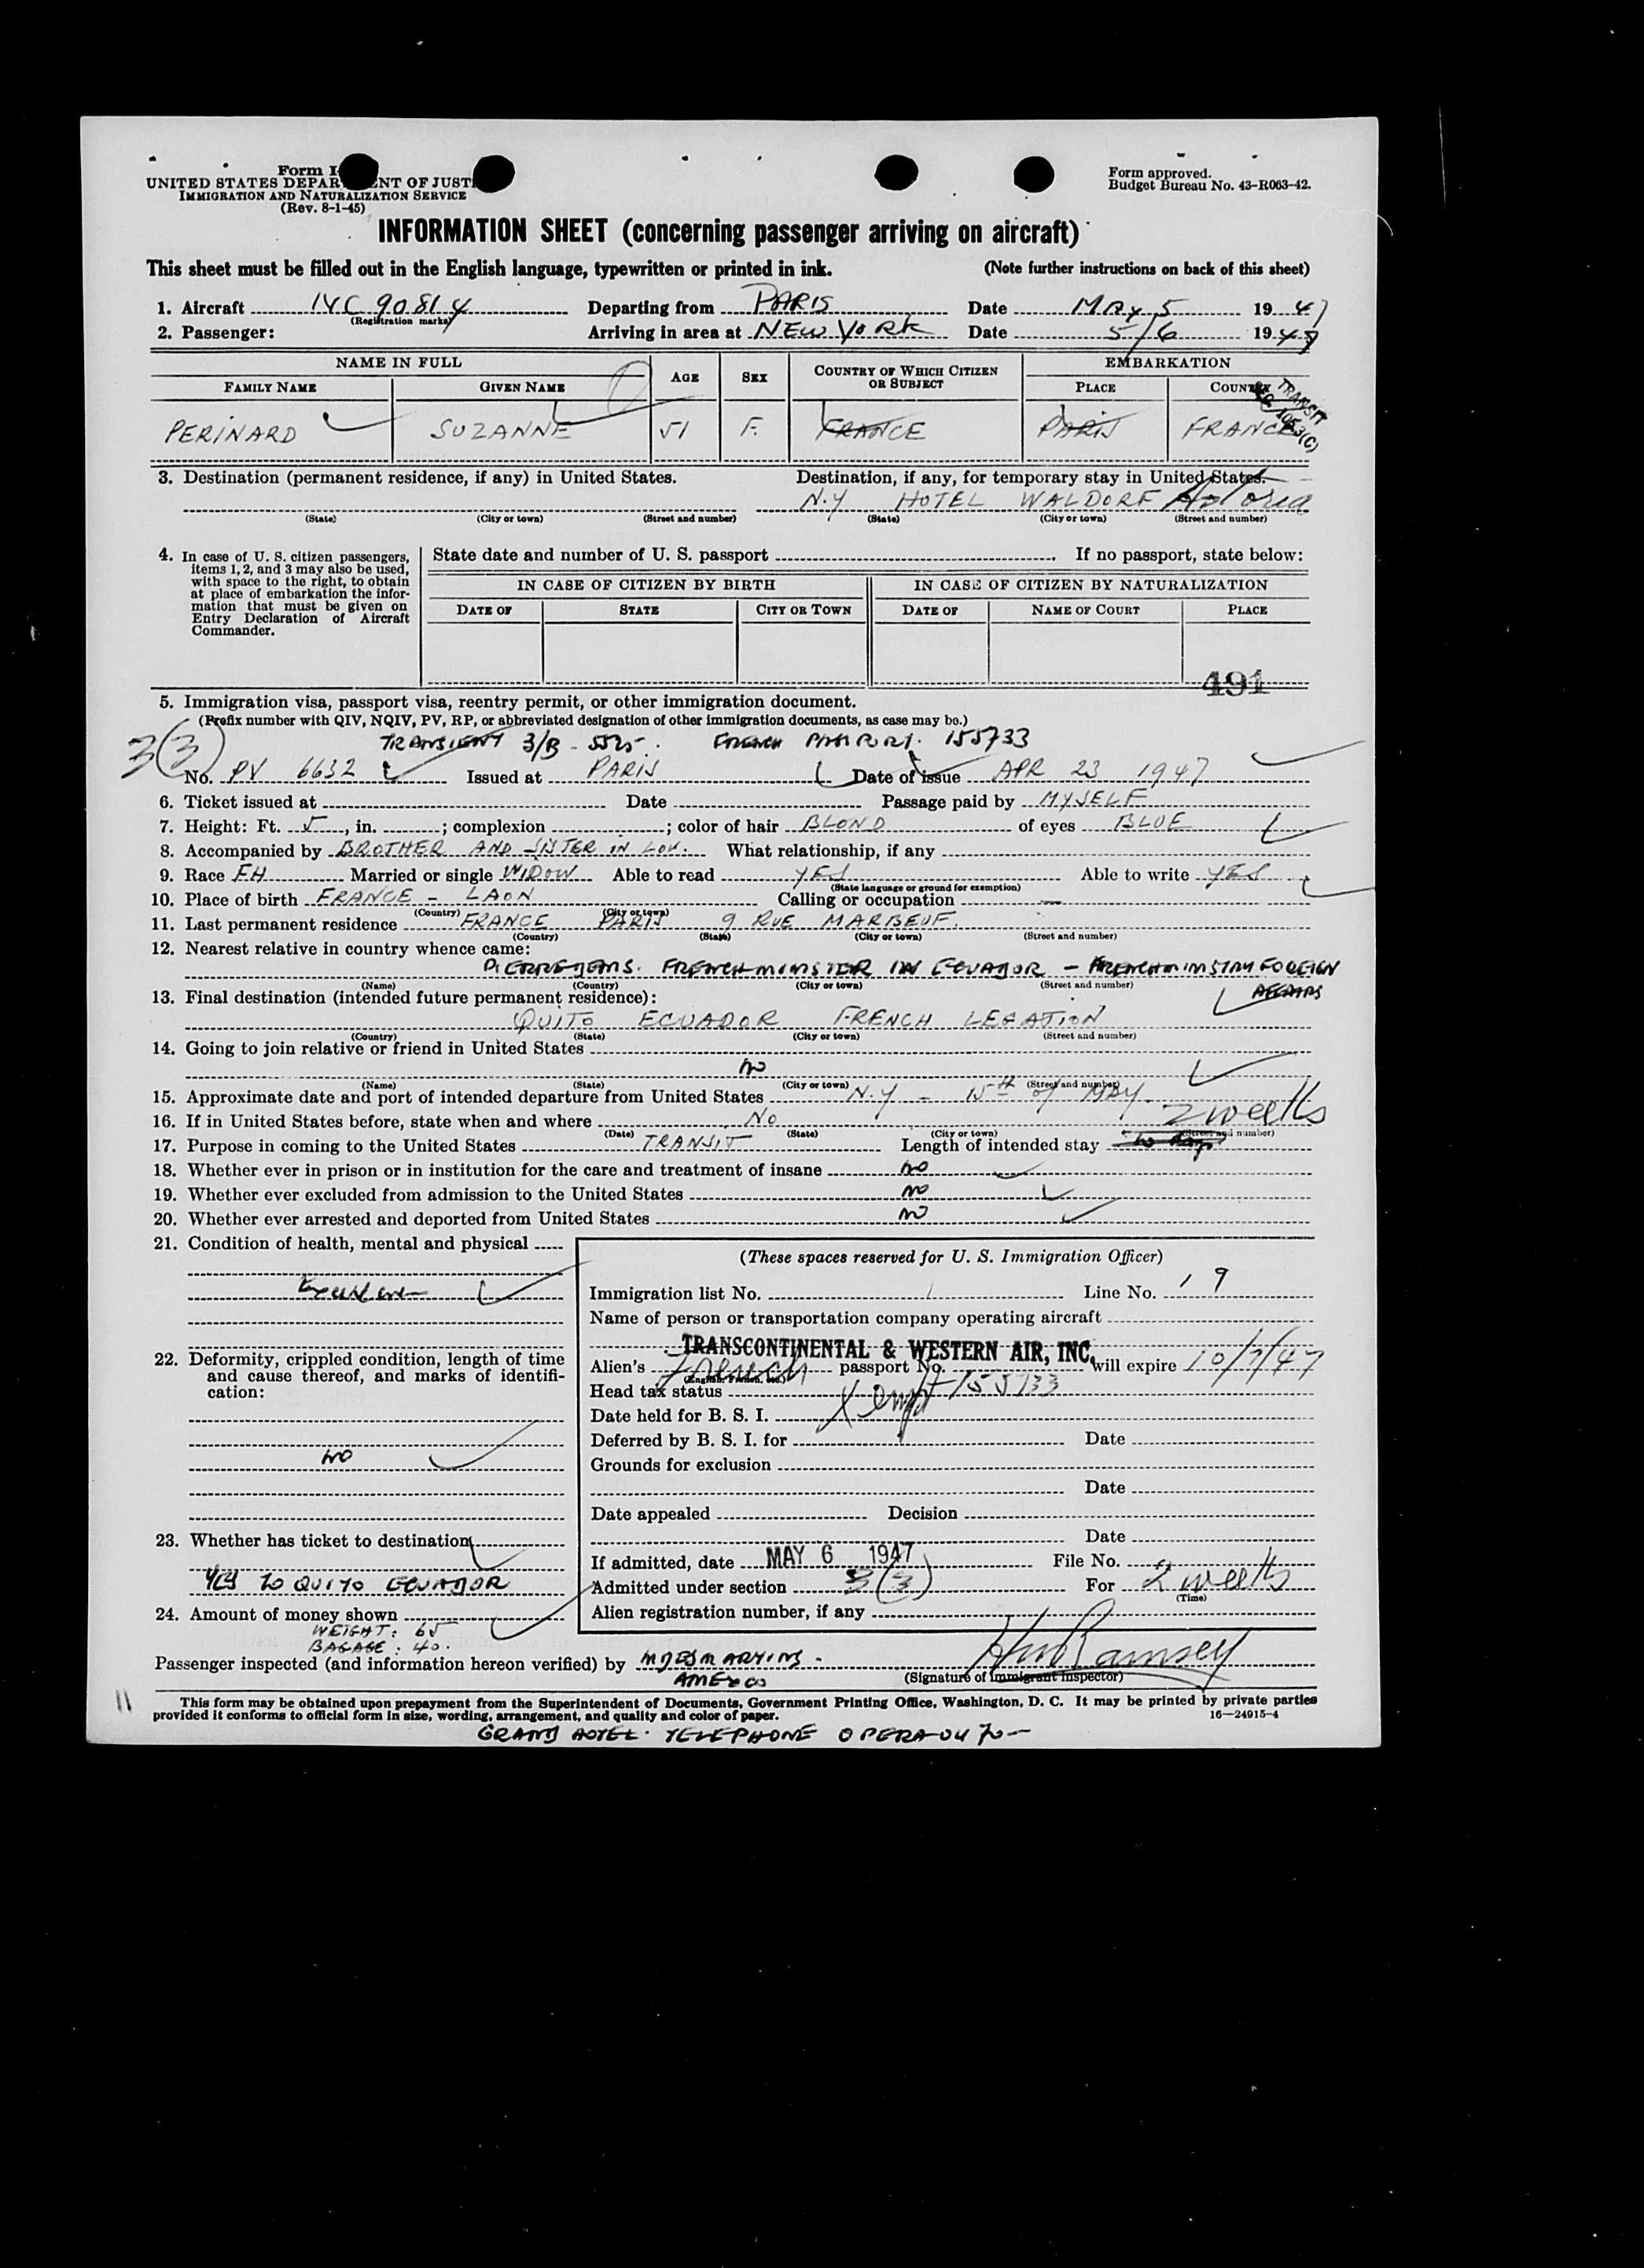 Form I-
UNITED STATES DEPAR ENT OF JUST
IMMIGRATION AND NATURALIZATION SERVICE
(Rev. 8-1-45)
Form approved.
Budget Bureau No. 43-R063-42.
INFORMATION SHEET (concerning passenger arriving on aircraft)
This sheet must be filled out in the English language, typewritten or printed in ink. (Note further instructions on back of this sheet)
1. Aircraft NC 90814 Departing from PARIS Date MAY 5 1947
(Registration marks)
2. Passenger: Arriving in area at NEW YORK Date 5/6 1947
NAME IN FULL AGE SEX COUNTRY OF WHICH CITIZEN OR SUBJECT EMBARKATION
FAMILY NAME GIVEN NAME PLACE COUNTRY
TRANSIT
1053(C)
PERINARD SUZANNE 51 F. FRANCE PARIS FRANCE
3. Destination (permanent residence, if any) in United States. Destination, if any, for temporary stay in United States.
N.Y HOTEL WALDORF Astoria
(State) (City or town) (Street and number) (State) (City or town) (Street and number)
4. In case of U. S. citizen passengers, items 1, 2, and 3 may also be used, with space to the right, to obtain at place of embarkation the information that must be given on Entry Declaration of Aircraft Commander.
State date and number of U. S. passport . If no passport, state below:
IN CASE OF CITIZEN BY BIRTH IN CASE OF CITIZEN BY NATURALIZATION
DATE OF STATE CITY OR TOWN DATE OF NAME OF COURT PLACE
491
5. Immigration visa, passport visa, reentry permit, or other immigration document.
(Prefix number with QIV, NQIV, PV, RP, or abbreviated designation of other immigration documents, as case may be.)
3(3) TRANSIENT 3/B - 5525. FRENCH PASSPORT. 155733
No. PV 6632 Issued at PARIS Date of issue APR 23 1947
6. Ticket issued at Date Passage paid by MYSELF
7. Height: Ft. 5, in. ; complexion ; color of hair BLOND of eyes BLUE
8. Accompanied by BROTHER AND SISTER IN LOW. What relationship, if any
9. Race FH Married or single WIDOW Able to read YES Able to write YES
(State language or ground for exemption)
10. Place of birth FRANCE - LAON Calling or occupation —
(Country) (City or town)
11. Last permanent residence FRANCE PARIS 9 RUE MARBEUF.
(Country) (State) (City or town) (Street and number)
12. Nearest relative in country whence came:
FRENCH MINISTER IN ECUADOR - FRENCH MINISTRY FOREIGN
AFFAIRS
(Name) (Country) (City or town) (Street and number)
13. Final destination (intended future permanent residence):
QUITO ECUADOR FRENCH LEGATION
(Country) (State) (City or town) (Street and number)
14. Going to join relative or friend in United States
NO
(Name) (State) (City or town) (Street and number)
15. Approximate date and port of intended departure from United States N.Y - 15th of MAY.
16. If in United States before, state when and where NO
(Date) (State) (City or town) (Street and number)
2 weeks
17. Purpose in coming to the United States TRANSIT Length of intended stay
18. Whether ever in prison or in institution for the care and treatment of insane NO
19. Whether ever excluded from admission to the United States NO
20. Whether ever arrested and deported from United States NO
21. Condition of health, mental and physical
Excellent
22. Deformity, crippled condition, length of time and cause thereof, and marks of identification:
NO
23. Whether has ticket to destination
YES TO QUITO ECUADOR
24. Amount of money shown
WEIGHT: 65
BAGAGE: 40.
(These spaces reserved for U. S. Immigration Officer)
Immigration list No. 1 Line No. 19
Name of person or transportation company operating aircraft
TRANSCONTINENTAL & WESTERN AIR, INC.
Alien's French passport No. 155733 will expire 10/7/47
(English, French, etc.)
Head tax status Xempt
Date held for B. S. I.
Deferred by B. S. I. for Date
Grounds for exclusion
Date
Date appealed Decision
Date
If admitted, date MAY 6 1947 File No.
Admitted under section 3(3) For 2 weeks
(Time)
Alien registration number, if any
Passenger inspected (and information hereon verified) by Ramsey
AMEXCO
(Signature of Immigrant Inspector)
This form may be obtained upon prepayment from the Superintendent of Documents, Government Printing Office, Washington, D. C. It may be printed by private parties
provided it conforms to official form in size, wording, arrangement, and quality and color of paper. 16—24915-4
GRAND HOTEL. TELEPHONE OPERA 04 70 -